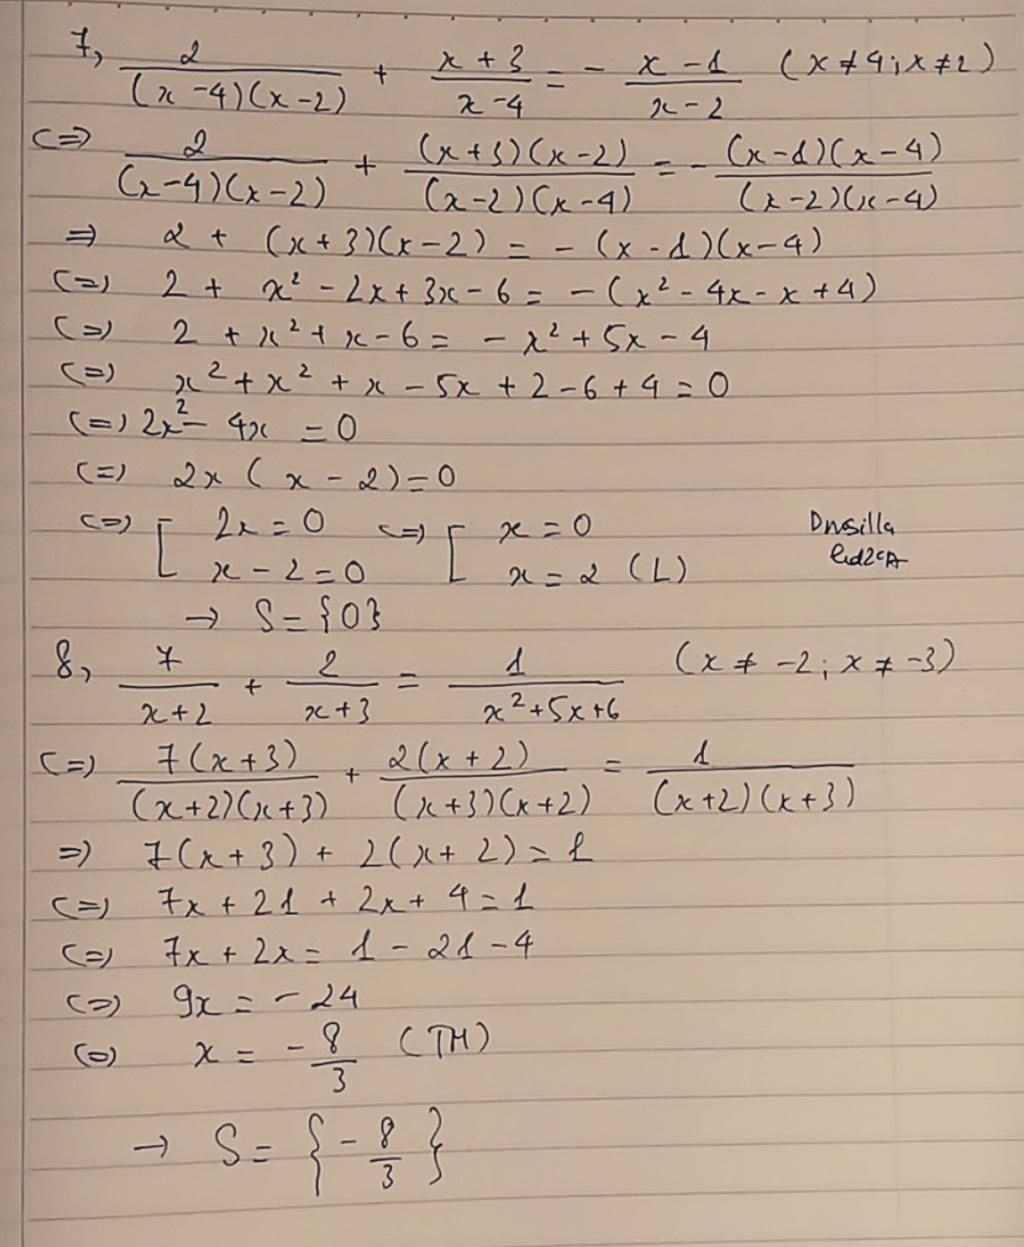 7, 2/((x-4)(x-2)) + (x+3)/(x-4) = - (x-1)/(x-2) (x≠4; x≠2)
<=> 2/((x-4)(x-2)) + ((x+3)(x-2))/((x-2)(x-4)) = - ((x-1)(x-4))/((x-2)(x-4))
=> 2 + (x+3)(x-2) = - (x-1)(x-4)
<=> 2 + x² - 2x + 3x - 6 = - (x² - 4x - x + 4)
<=> 2 + x² + x - 6 = - x² + 5x - 4
<=> x² + x² + x - 5x + 2 - 6 + 4 = 0
<=> 2x² - 4x = 0
<=> 2x (x - 2) = 0
<=> [ 2x = 0 <=> [ x = 0
x - 2 = 0 x = 2 (L)
→ S = {0}
8, 7/(x+2) + 2/(x+3) = 1/(x²+5x+6) (x ≠ -2; x ≠ -3)
<=> (7(x+3))/((x+2)(x+3)) + (2(x+2))/((x+3)(x+2)) = 1/((x+2)(x+3))
=> 7(x+3) + 2(x+2) = 1
<=> 7x + 21 + 2x + 4 = 1
<=> 7x + 2x = 1 - 21 - 4
<=> 9x = - 24
<=> x = - 8/3 (TM)
→ S = {- 8/3}